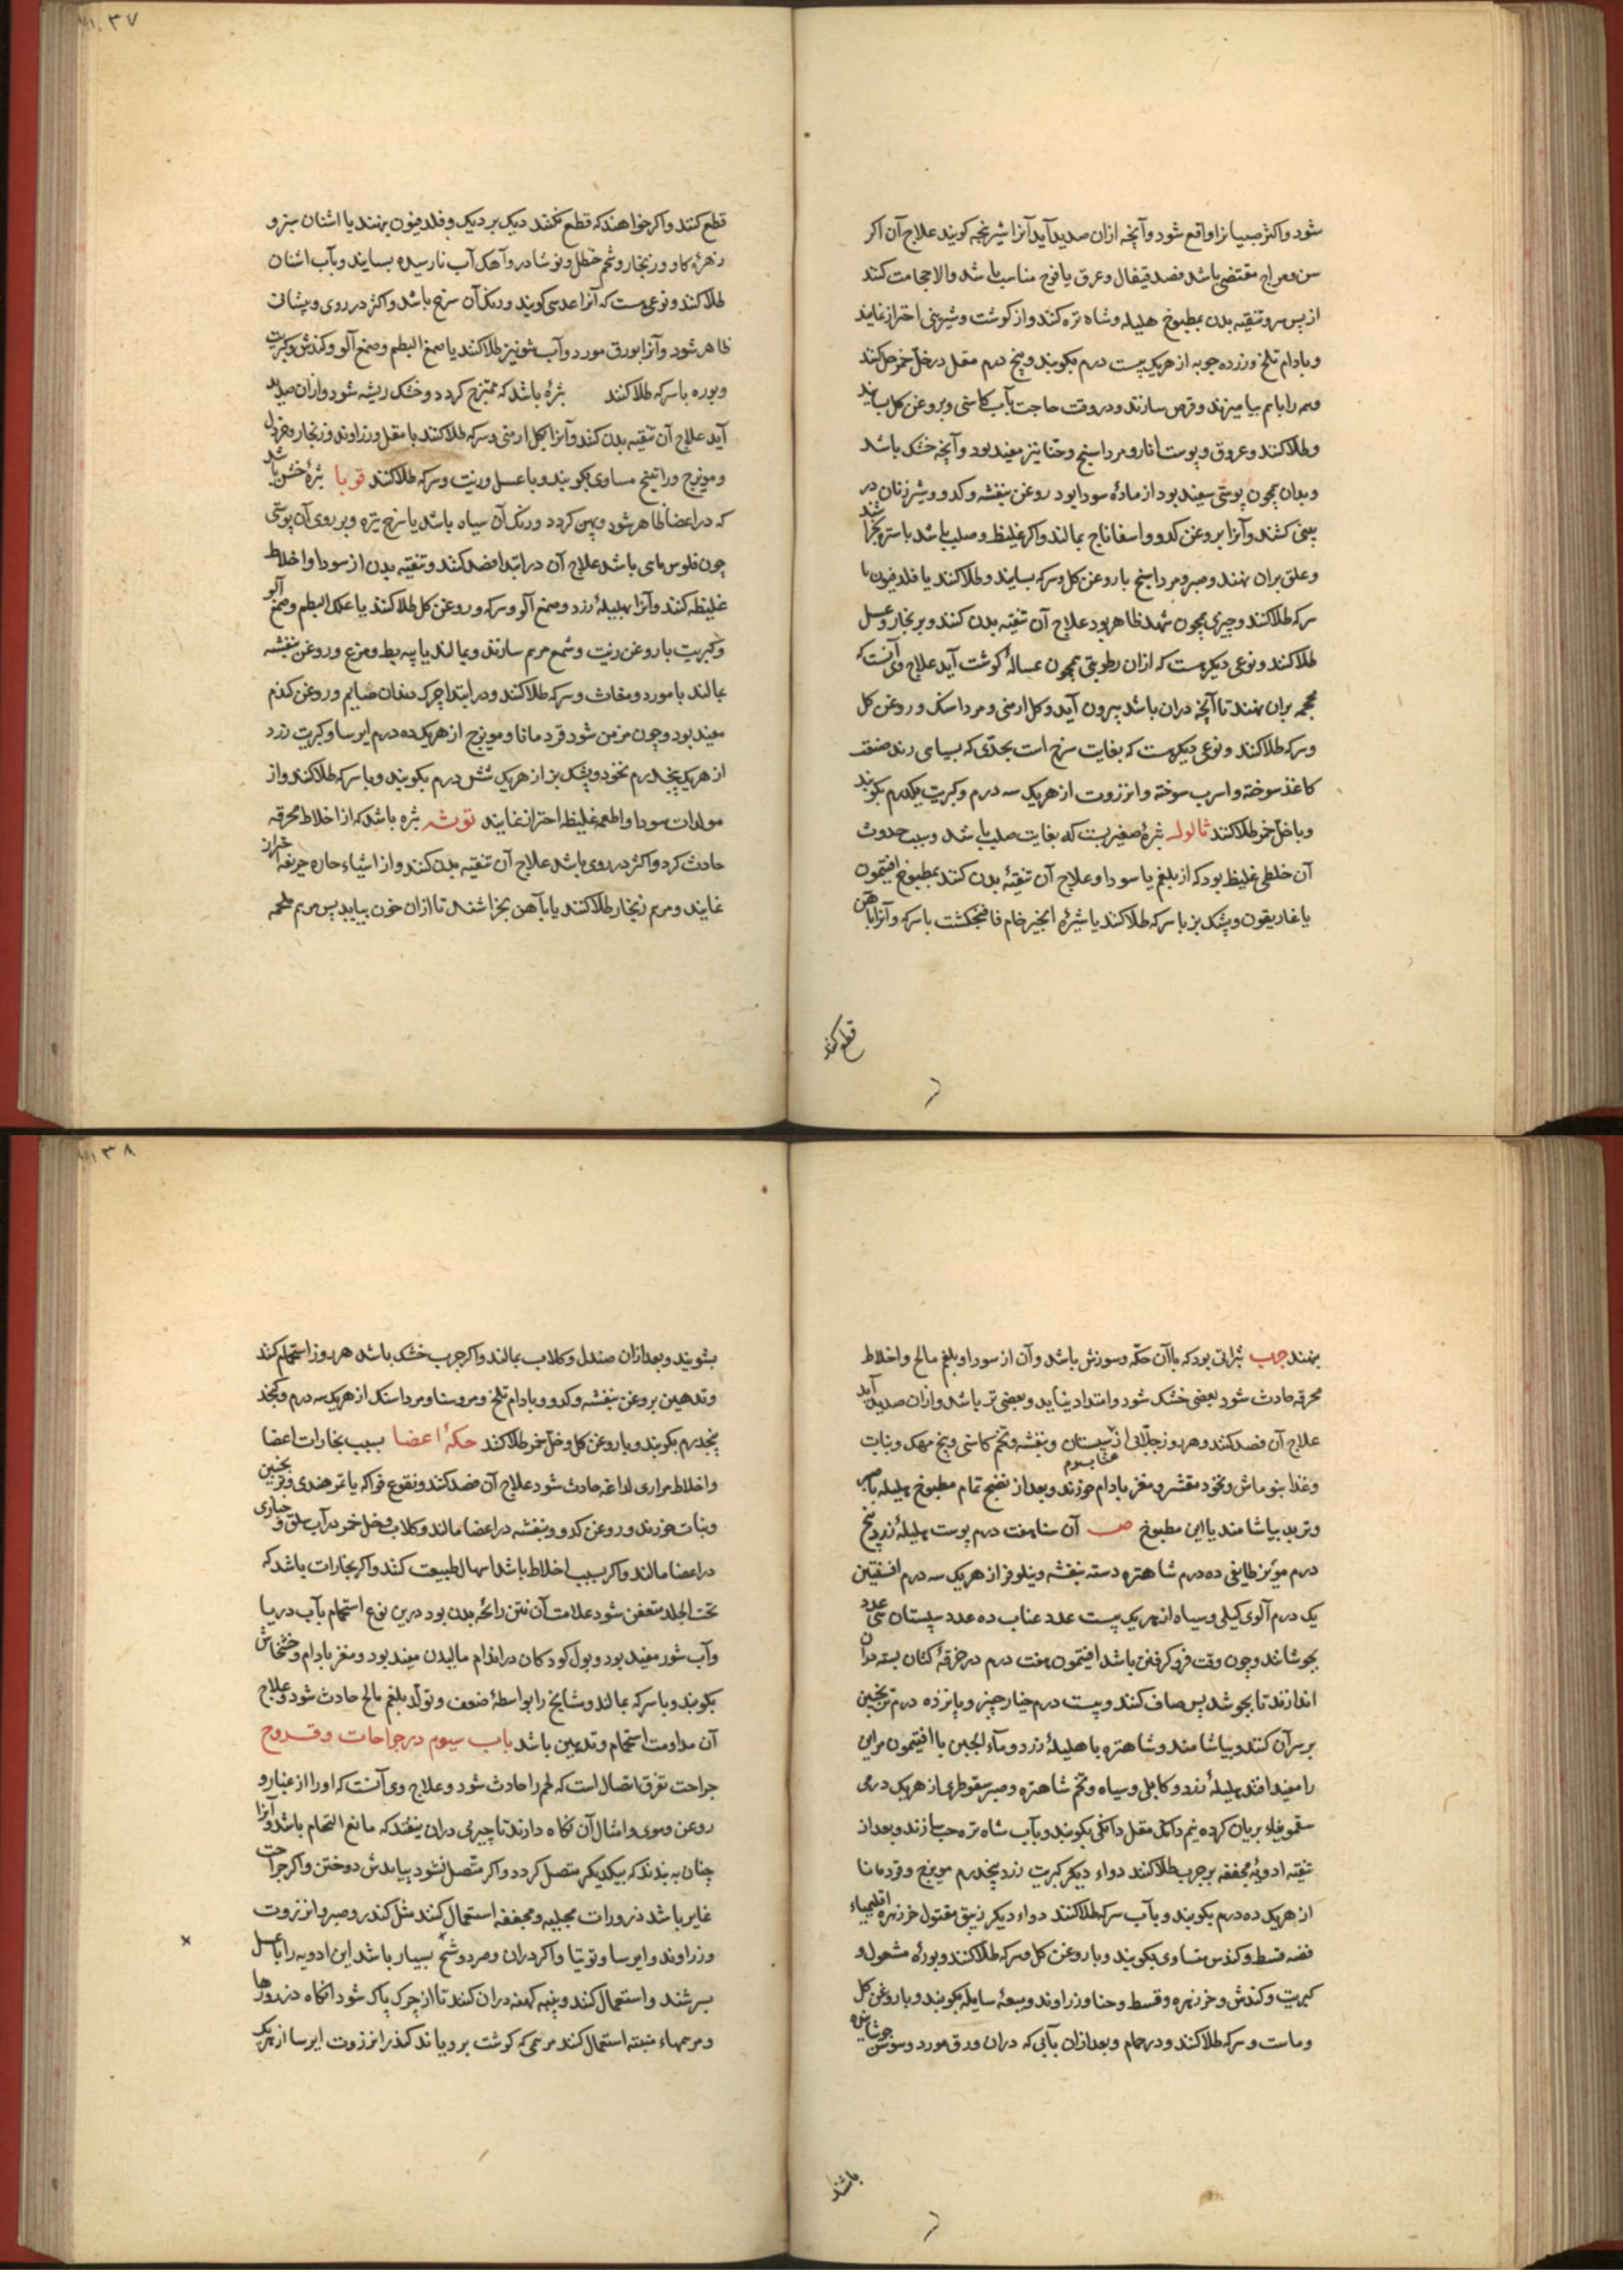 شود و اکثر صبیانرا واقع شود و آنچه ازان صدید آید آنرا شیرنجه کویند علاج آن اکر
سن و مزاج مقتضی باشد فصد قیفال و عرق یافوخ مناسب باشد و الا حجامت کنند
از پس سر و تنقیه بدن بمطبوخ هلیله و شاه تره کنند و از کوشت و شیرینی احتراز نمایند
و بادام تلخ و زرده جوبه از هر یک بیست درم بکوبند و پنج درم مقل در خل خمر حل کنند
و همه را باهم بیامیزند و قرص سازند و در وقت حاجت بآب کاسنی و بروغن کل بسایند
و طلا کنند و عروق و پوست انار و مرداسنج و حنا نیز مفید بود و آنچه خشک باشد
و بدان همچون پوستی سفید بود از ماده سودا بود روغن بنفشه و کدو و شیر زنان در
بینی کشند و آنرا بروغن کدو و اسفاناج بمالند و اکر غلیظ و صلب باشد باستره بخراشند
و علق بران نهند و صبر و مرداسنج با روغن کل و سرکه بسایند و طلا کنند یا فلدفیون با
سرکه طلا کنند و چیزی همچون شهد ظاهر بود علاج آن تنقیه بدن کنند و بزنجار و عسل
طلا کنند و نوعی دیکرست که ازان رطوبتی همچون غسالهٔ کوشت آید علاج وی آنست که
محجمه بران نهند تا آنچه دران باشد بیرون آید و کل ارمنی و مرداسنک و روغن کل
و سرکه طلا کنند و نوعی دیکرست که بغایت سرخ است بحدّی که بسیاهی زند
کاغذ سوخته و اسرب سوخته و انزروت از هر یک سه درم و کبریت یکدرم بکوبند
و با خل خمر طلا کنند ثالول بثرهٔ صغیریست که بغایت صلب باشد و سبب حدوث
آن خلطی غلیظ بود که از بلغم یا سودا و علاج آن تنقیهٔ بدن کنند بمطبوخ افتیمون
یا غاریقون و پشک بز با سرکه طلا کنند یا شیرهٔ انجیر خام با سرکه و آنرا بآهن
قطع کنند
۳۷
قطع کنند و اکر خواهند که قطع نکنند دیک بر دیک و فلدفیون نهند یا اشنان سبز و
زهرهٔ کاو و زنجار و شحم حنظل و نوشادر و آهک آب نارسیده بسایند و بآب اشنان
طلا کنند و نوعی هست که آنرا عدسی کویند و رنک آن سرخ باشد و اکثر در روی و پیشانی
ظاهر شود و آنرا بورق مورد و آب شونیز طلا کنند یا صمغ البطم و صمغ آلو و کندش و کبریت
و بوره با سرکه طلا کنند بثرهٔ باشد که ممتزج کردد و خشک ریشه شود و ازان صدید
آید علاج آن تنقیه بدن کنند و آنرا بکل ارمنی و سرکه طلا کنند با مقل و زراوند و زنجار و خردل
و مویزج و راتینج مساوی بکوبند و با عسل و زیت و سرکه طلا کنند قوبا بثرهٔ خشن باشد
که در اعضا ظاهر شود و پهن کردد و رنک آن سیاه باشد یا سرخ تیره و بر روی آن پوستی
چون فلوس ماهی باشد علاج آن در ابتدا فصد کنند و تنقیه بدن از سودا و اخلاط
غلیظه کنند و آنرا بهلیلهٔ زرد و صمغ آلو و سرکه و روغن کل طلا کنند یا علک البطم و صمغ آلو
و کبریت با روغن زیت و شمع مرهم سازند و بمالند یا پیه بط و مرغ و روغن بنفشه
بمالند با مورد و مغاث و سرکه طلا کنند و در ابتدا چرک دندان صایم و روغن کندم
مفید بود و چون مزمن شود قردمانا و مویزج از هر یک ده درم ایرسا و کبریت زرد
از هر یک پنجدرم نخود و پشک بز از هر یک شش درم بکوبند و با سرکه طلا کنند و از
مولدات سودا و اطعمه غلیظه احتراز نمایند توثه بثره باشد که از اخلاط محرقه
حادث کردد و اکثر در روی باشد علاج آن تنقیه بدن کنند و از اشیاء حاره حریفه احتراز
نمایند و مرهم زنجار طلا کنند یا بآهن بخراشند تا ازان خون بیاید پس مرهم ملحمه
نهند جرب بثراتی بود که باآن حکّه و سوزش باشد و آن از سودا و بلغم مالح و اخلاط
محرقه حادث شود بعضی خشک شود و امتداد نیابد و بعضی تر باشد و ازان صدید آید
علاج آن فصد کنند و هر روز جلّابی از سپستان و بنفشه و تخم کاسنی و بیخ مهک و نبات
و غذا بنوماش و نخود مقشر و مغز بادام خورند و بعد از نضج تمام مطبوخ هلیله با صبر
و تربد بیاشامند یا این مطبوخ ص آن سنا هفت درم پوست هلیلهٔ زرد پنج
درم مویز طایفی ده درم شاهتره دسته بنفشه و نیلوفر از هر یک سه درم افسنتین
یک درم آلوی کیلی و سیاه از هر یک بیست عدد عناب ده عدد سپستان سی عدد
بجوشانند و چون وقت فرو کرفتن باشد افتیمون هفت درم در خرقهٔ کتان بسته در آن
اندازند تا بجوشد پس صاف کنند و بیست درم خیارچنبر و پانزده درم ترنجبین
بر سر آن کنند و بیاشامند و شاهتره با هلیلهٔ زرد و مآء الجبن با افتیمون مر این
را مفید افتد هلیلهٔ زرد و کابلی و سیاه و تخم شاهتره و صبر سقوطری از هر یک درمی
سقمونیاء بریان کرده نیم دانک مقل دانکی بکوبند و بآب شاه تره حب سازند و بعد از
تنقیه ادویهٔ مجففه بر جرب طلا کنند دواء دیکر کبریت زرد پنجدرم مویزج و قردمانا
از هر یک ده درم بکوبند و بآب سرکه طلا کنند دواء دیکر زیبق مقتول خرزهره اقلیمیاء
فضه قسط و کندس متساوی بکوبند و با روغن کل و سرکه طلا کنند و بورهٔ مشعول و
کبریت و کندش و خرزهره و قسط و حنا و زراوند و میعهٔ سایله بکوبند و با روغن کل
و ماست و سرکه طلا کنند و در حمام و بعد ازان بآبی که دران ورق مورد و سوسن جوشانیده
باشند
۳۸
بشویند و بعد ازان صندل و کلاب بمالند و اکر جرب خشک باشد هر روز استحمام کنند
و تدهین بروغن بنفشه و کدو و بادام تلخ و مروسنا و مرداسنک از هر یک سه درم و کنجد
پنجدرم بکوبند و با روغن کل و خل خمر طلا کنند حکهٔ اعضا بسبب بخارات اعضا
و اخلاط مراری لداغه حادث شود علاج آن فصد کنند و نقوع فواکه یا تمر هندی و ترنجبین
و نبات خورند و روغن کدو و بنفشه در اعضا مالند و کلاب و خل خمر در آب سلق و خبازی
در اعضا مالند و اکر بسبب اخلاط باشد اسهال طبیعت کنند و اکر بخارات باشد که
تحت الجلد متعفن شود علامت آن نتن رائحه بدن بود درین نوع استحمام بآب دریا
و آب شور مفید بود و بول کودکان در اندام مالیدن مفید بود و مغز بادام و خشخاش
بکوبند و با سرکه بمالند و مشایخ را بواسطهٔ ضعف و تولد بلغم مالح حادث شود و علاج
آن مداومت استحمام و تدهین باشد باب سیوم در جراحات و قروح
جراحت تفرق اتصال است که لحم را حادث شود و علاج وی آنست که او را از غبار و
روغن و موی و امثال آن نکاه دارند تا چیزی دران نیفتد که مانع التحام باشد و آنرا
چنان به بندند که بیکدیکر متصل کردد و اکر متصل نشود بیایدش دوختن و اکر جراحت
غایر باشد ذرورات مجلیه و مجففه استعمال کنند مثل کندر و صبر و انزروت
و زراوند و ایرسا و توتیا و اکر دران بسیار باشد این ادویه را با عسل
بسرشند و استعمال کنند و پنبه کهنه دران کنند تا از چرک پاک شود آنکاه ذرورها
و مرهمهاء منبته استعمال کنند مرهمی که کوشت برویاند کندر انزروت ایرسا از هر یک